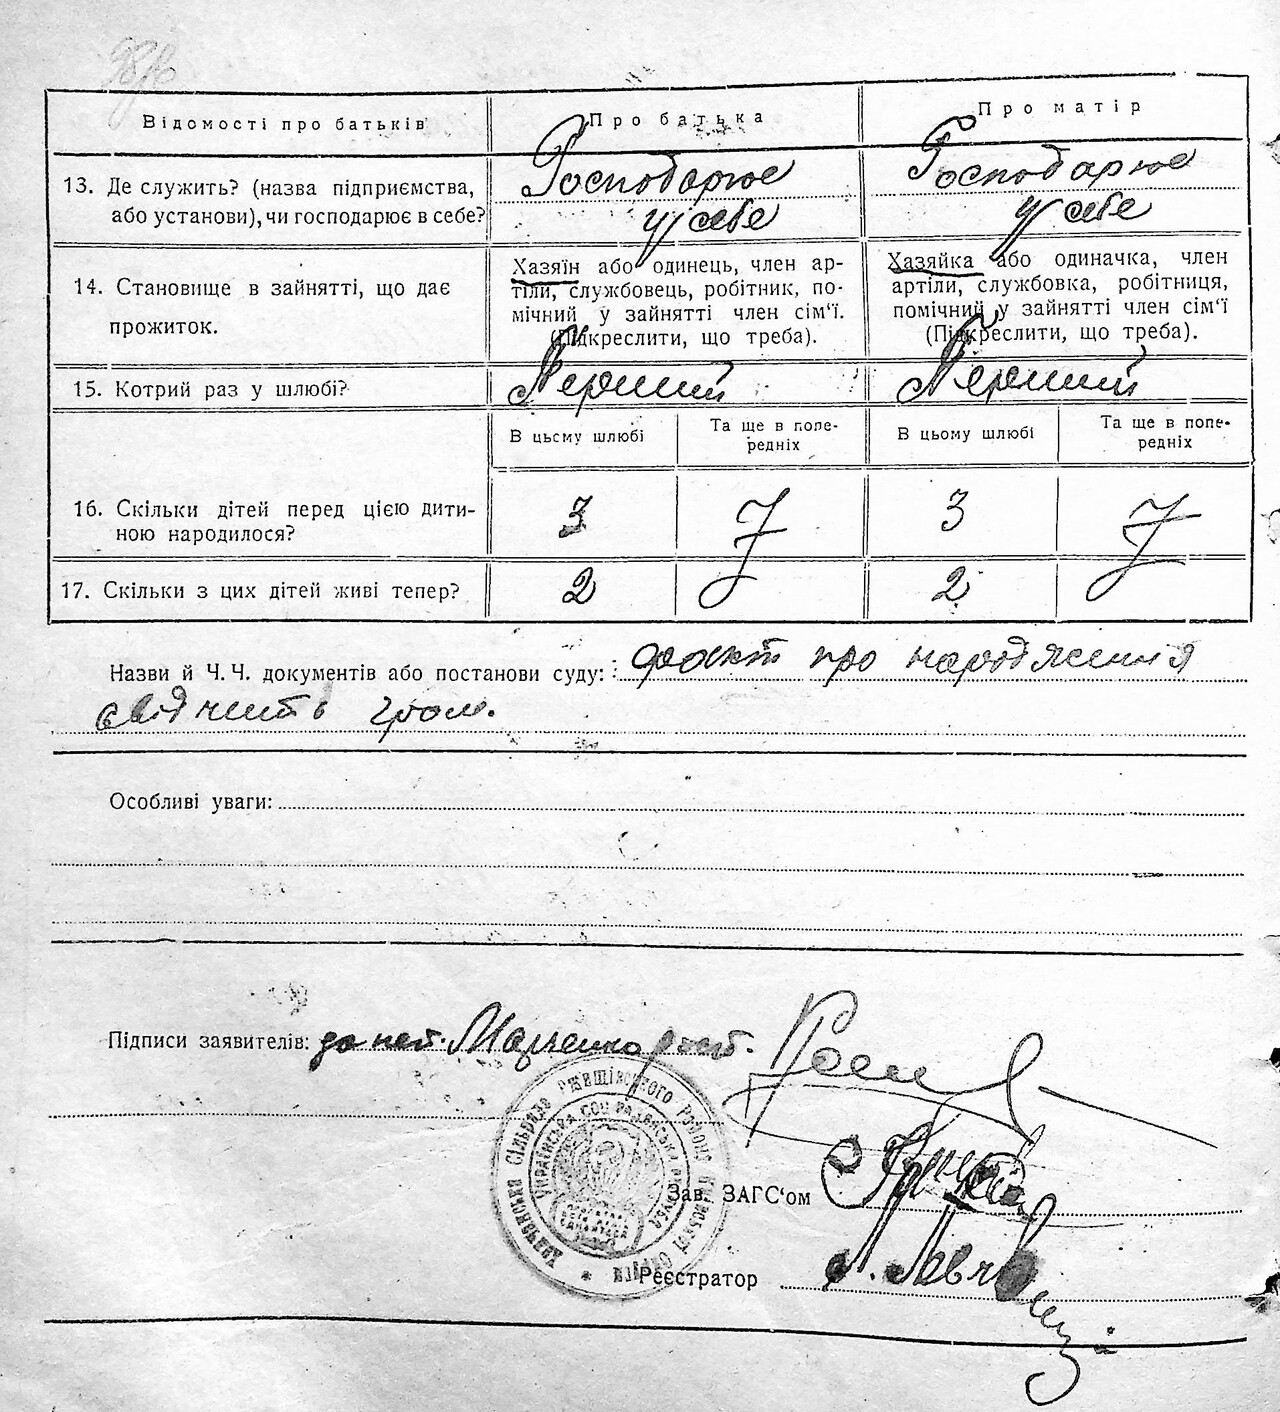 Відомості про батьків
Про батька
Про матір
13. Де служить? (назва підприємства,
або установи), чи господарює в себе?
Господарює
у себе
Господарює
у себе
14. Становище в зайнятті, що дає
прожиток.
Хазяїн або одинець, член ар-
тіли, службовець, робітник, по-
мічний у зайнятті член сім'ї.
(Підкреслити, що треба).
Хазяйка або одиначка, член
артіли, службовка, робітниця,
помічний у зайнятті член сім'ї
(Підкреслити, що треба).
15. Котрий раз у шлюбі?
Перший
Перший
В цьому шлюбі
Та ще в попе-
редніх
В цьому шлюбі
Та ще в попе-
редніх
16. Скільки дітей перед цією дити-
ною народилося?
3
3
17. Скільки з цих дітей живі тепер?
2
2
Назви й Ч. Ч. документів або постанови суду: факт про народження
свідчить гром.
Особливі уваги:
Підписи заявителів: за неп. Марченко розп.
Зав. ЗАГС'ом
Реєстратор
сільрада Ржещівського району Київської округи
Українська Соц. Радянська Республ.